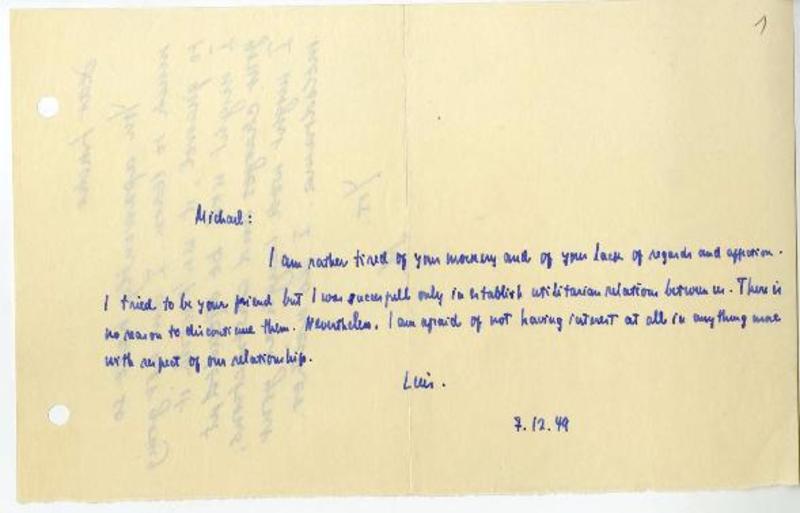 1
Michael:
I am rather tired of your mockery and of your lack of regards and affection.
I tried to be your friend but I was succesfull only in establish utilitarian relations between us. There is
no reason to discontinue them. Nevertheless, I am afraid of not having interest at all in anything more
with respect of our relationship.
Luis.
7.12.49